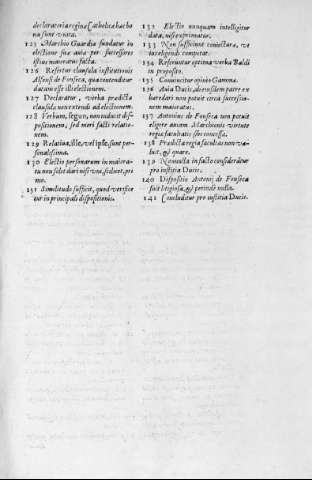 declaratoria regina Catholica hac bo
na sunt vinta.
125 Marchio Guardia fundatur in
electione sua avia per successores
istius maioratus facta.
126 Refertur clausula institutionis
Alfonsi de Fonseca, qua contenditur
ducatum esse illi electionem.
127 Declaratur, verba predicta
clausula non extendi ad electionem.
128 Verbum, seguir, non inducit dis-
positionem, sed meri facti relatio-
nem.
129 Relativa, ille, vel ipse, sunt per-
sonalissima.
130 Electio personarum in maiora-
tu non
131 Similitudo sufficit, quod verifice
tur in principali dispositione.
132 Electio nunquam intelligitur
data, nisi exprimatur.
133 Non sufficiunt coniectura, ve
inteligendi computat.
134 Referuntur optima verba Baldi
in proposito.
135 Convincitur opinio Gamma.
136 Avia Ducis, de eiusdem pater ex
haredari non potuit circa successio-
nem maioratus.
137 Antonius de Fonseca non potuit
eligere aviam Marchionis virtute
regia facultatis sibi concessa.
138 Predicta regia facultas non va-
luit, & quare.
139 Nonnulla in facto considerantur
pro iustitia Ducis.
140 Dispositio Antonij de Fonseca
fuit litigiosa, & perinde nulla.
141 Concluditur pro iustitia Ducis.